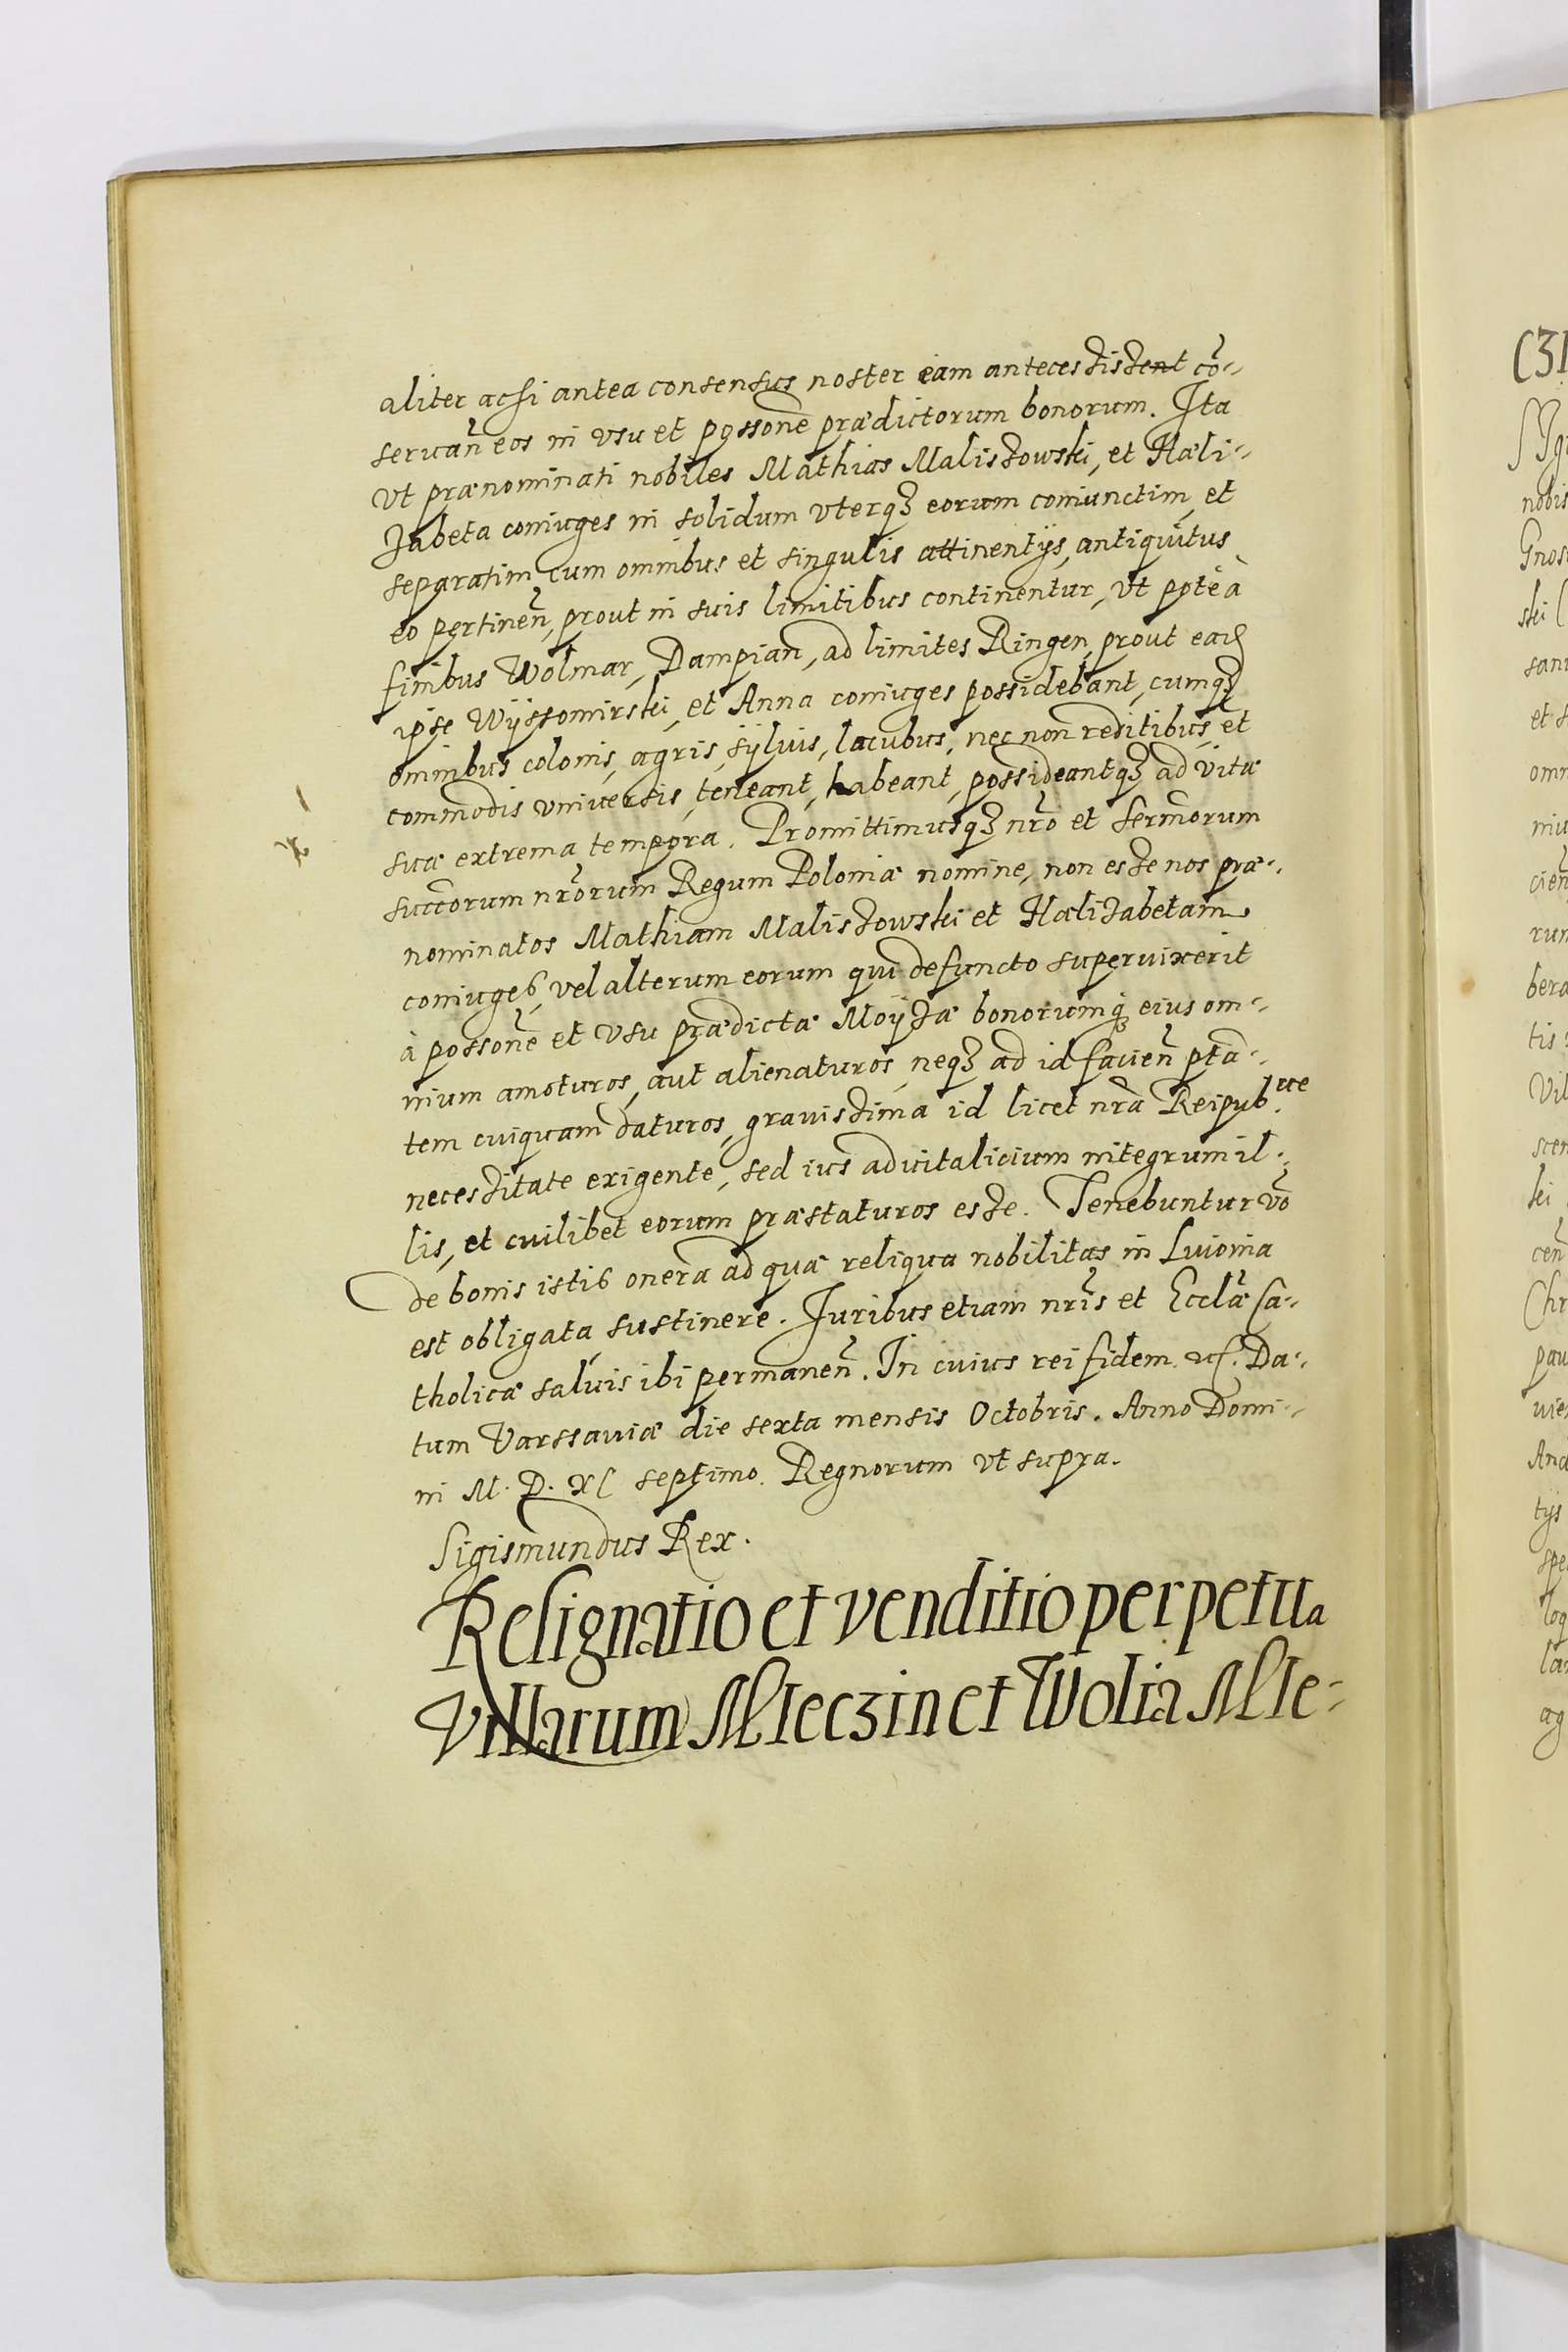 aliter acsi antea consensus noster eam antecessissent cō-
seruan̄ eos in vsu et possone prædictorum bonorum. Ita
vt prænominati nobiles Mathias Maliszowski, et Hæli-
zabeta coniuges in solidum vterqꝫ eorum coniunctim, et
separatim cum omnibus et singulis attinentÿs, antiquitus
eo pertinen̄, prout in suis limitibus continentur, vt pote à
finibus Wolmar, Dampian, ad limites Ringen, prout
ipse Wÿssomirski, et Anna coniuges possidebant, cumqꝫ
omnibus colonis, agris, sÿluis, lacubus, nec non reditibus, et
commodis vniuersis, teneant, habeant, possideantqꝫ ad vitæ
suæ extrema tempora. Promittimusqꝫ nr̄o et sermorum
succorum nr̄orum Regum Poloniæ nomine, non esse nos præ-
nominatos Mathiam Maliszowski et Hælizabetam
coniuges, vel alterum eorum qui defuncto superuixerit
à possone et vsu prædictæ Moÿzæ bonorumqꝫ eius om-
nium amoturos, aut alienaturos, neqꝫ ad id facien̄ ptā-
tem cuiquam daturos, grauissima id licet nr̄a Reipub.cæ
necessitate exigente, sed ius aduitalicium integrum il-
lis, et cuilibet eorum præstaturos esse. Tenebuntur vō
de bonis istis onera ad quæ reliqua nobilitas in Liuonia
est obligata, sustinere. Iuribus etiam nr̄is et Ecclæ Ca-
tholicæ saluis ibi permanen̄. In cuius rei fidem etc. Da-
tum Varssauiæ die sexta mensis Octobris. Anno Domi-
ni M. D. XC septimo. Regnorum vt supra.
Sigismundus Rex.
Resignatio et venditio perpetua
Villarum Mieczin et Wolia Mie-